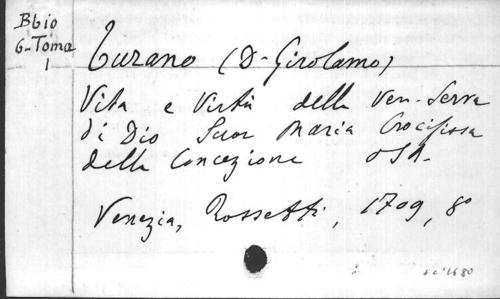 Bbio
6-Toma
1
Turano (D. Girolamo)
Vita e Virtù della Ven. Serva
di Dio Suor Maria Crocifissa
della Concezione OSB.
Venezia, Rossetti, 1709, 8°